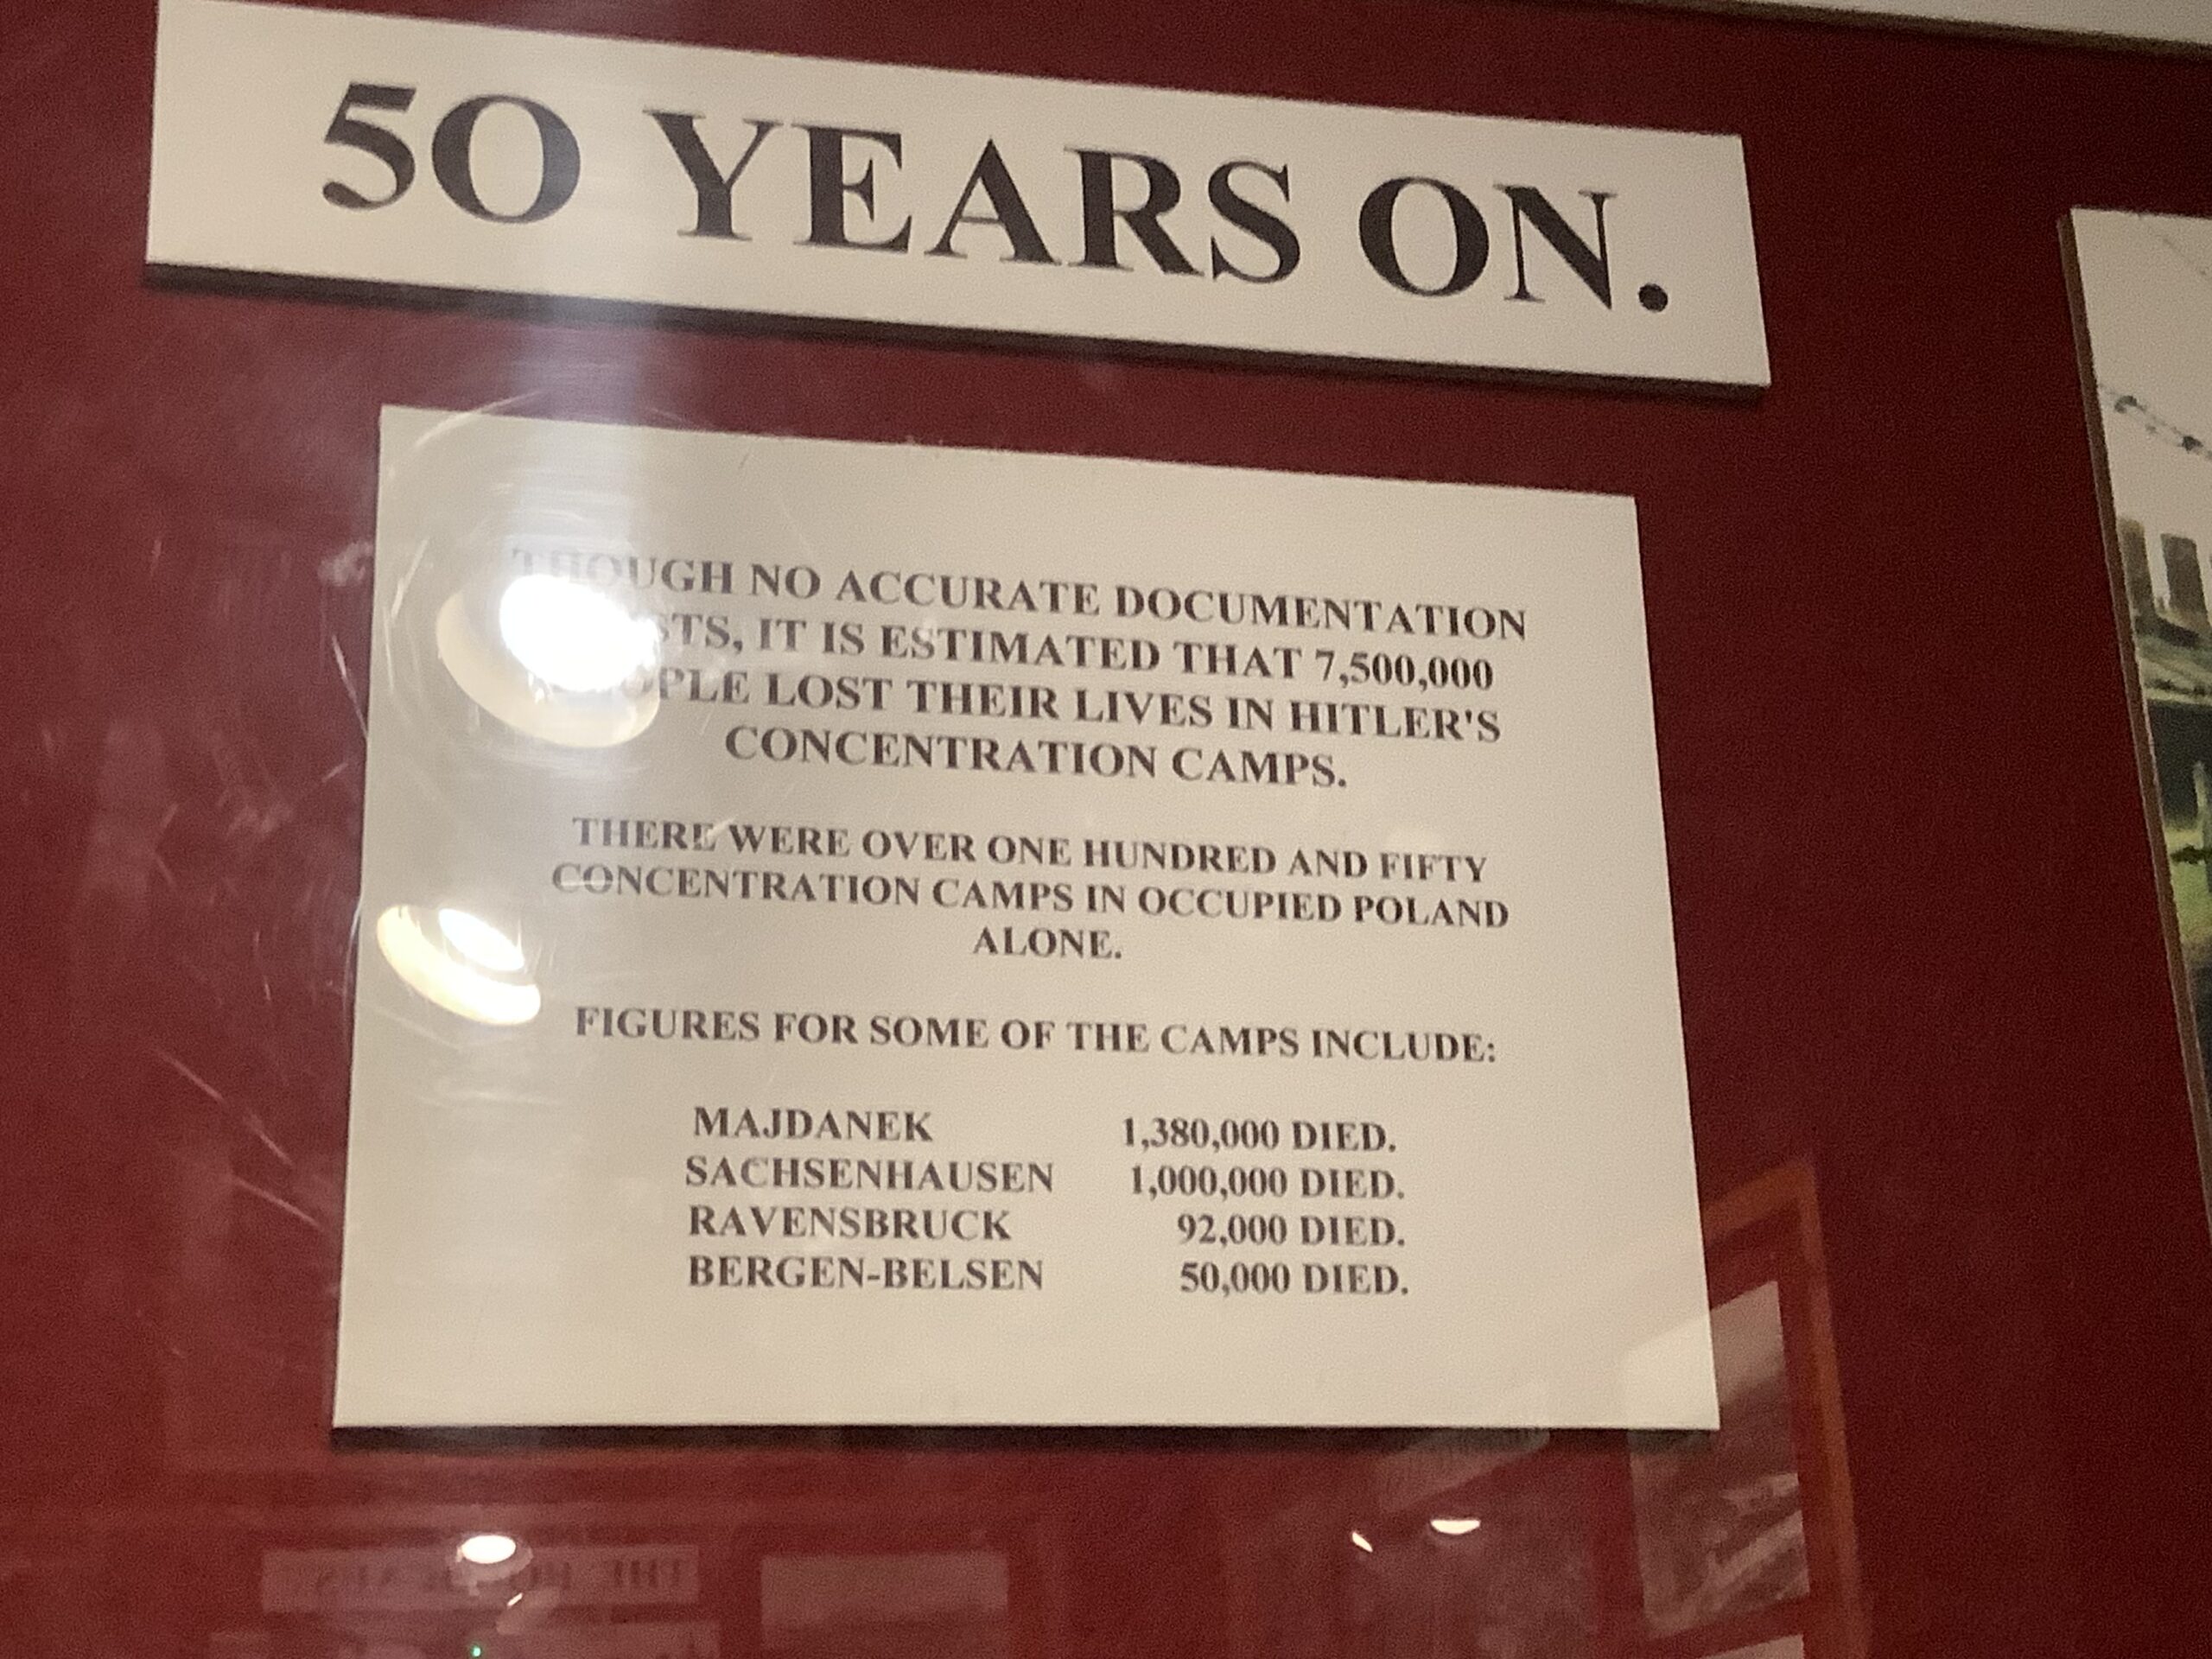 50 YEARS ON.
THOUGH NO ACCURATE DOCUMENTATION
IT IS ESTIMATED THAT 7,500,000
LOST THEIR LIVES IN HITLER'S
CONCENTRATION CAMPS.
THERE WERE OVER ONE HUNDRED AND FIFTY
CONCENTRATION CAMPS IN OCCUPIED POLAND
ALONE.
FIGURES FOR SOME OF THE CAMPS INCLUDE:
MAJDANEK 1,380,000 DIED.
SACHSENHAUSEN 1,000,000 DIED.
RAVENSBRUCK 92,000 DIED.
BERGEN-BELSEN 50,000 DIED.